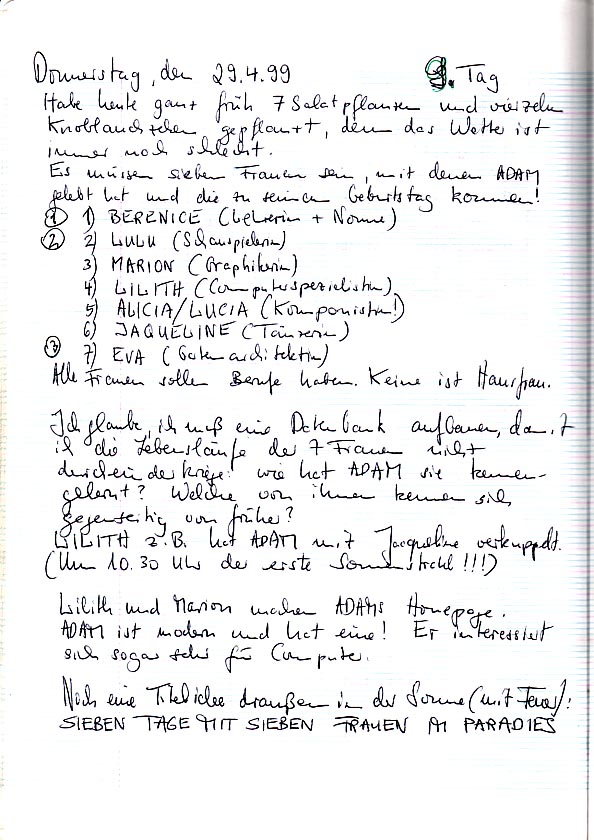 Donnerstag, den 29.4.99 9. Tag
Habe heute ganz früh 7 Salatpflanzen und vierzehn
Knoblauchzehen gepflanzt, denn das Wetter ist
immer noch schlecht.
Es müssen sieben Frauen sein, mit denen ADAM
gelebt hat und die zu seinem Geburtstag kommen!
① 1) BERENICE (Lehrerin + Nonne)
② 2) LULU (Schauspielerin)
3) MARION (Graphikerin)
4) LILITH (Computerspezialistin)
5) ALICIA/LUCIA (Komponistin!)
6) JAQUELINE (Tänzerin)
③ 7) EVA (Gartenarchitektin)
Alle Frauen sollen Berufe haben. Keine ist Hausfrau.
Ich glaube, ich muß eine Datenbank aufbauen, damit
ich die Lebensläufe der 7 Frauen nicht
durcheinder kriege: wie hat ADAM sie kennen-
gelernt? Welche von ihnen kennen sich
gegenseitig von früher?
LILITH z.B. hat ADAM mit Jacqueline verkuppelt.
(Um 10.30 Uhr der erste Sonnenstrahl!!!)
Lilith und Marion machen ADAMs Homepage.
ADAM ist modern und hat eine! Er interessiert
sich sogar sehr für Computer.
Noch eine Titelidee draußen in der Sonne (mit Feuer):
SIEBEN TAGE MIT SIEBEN FRAUEN IM PARADIES